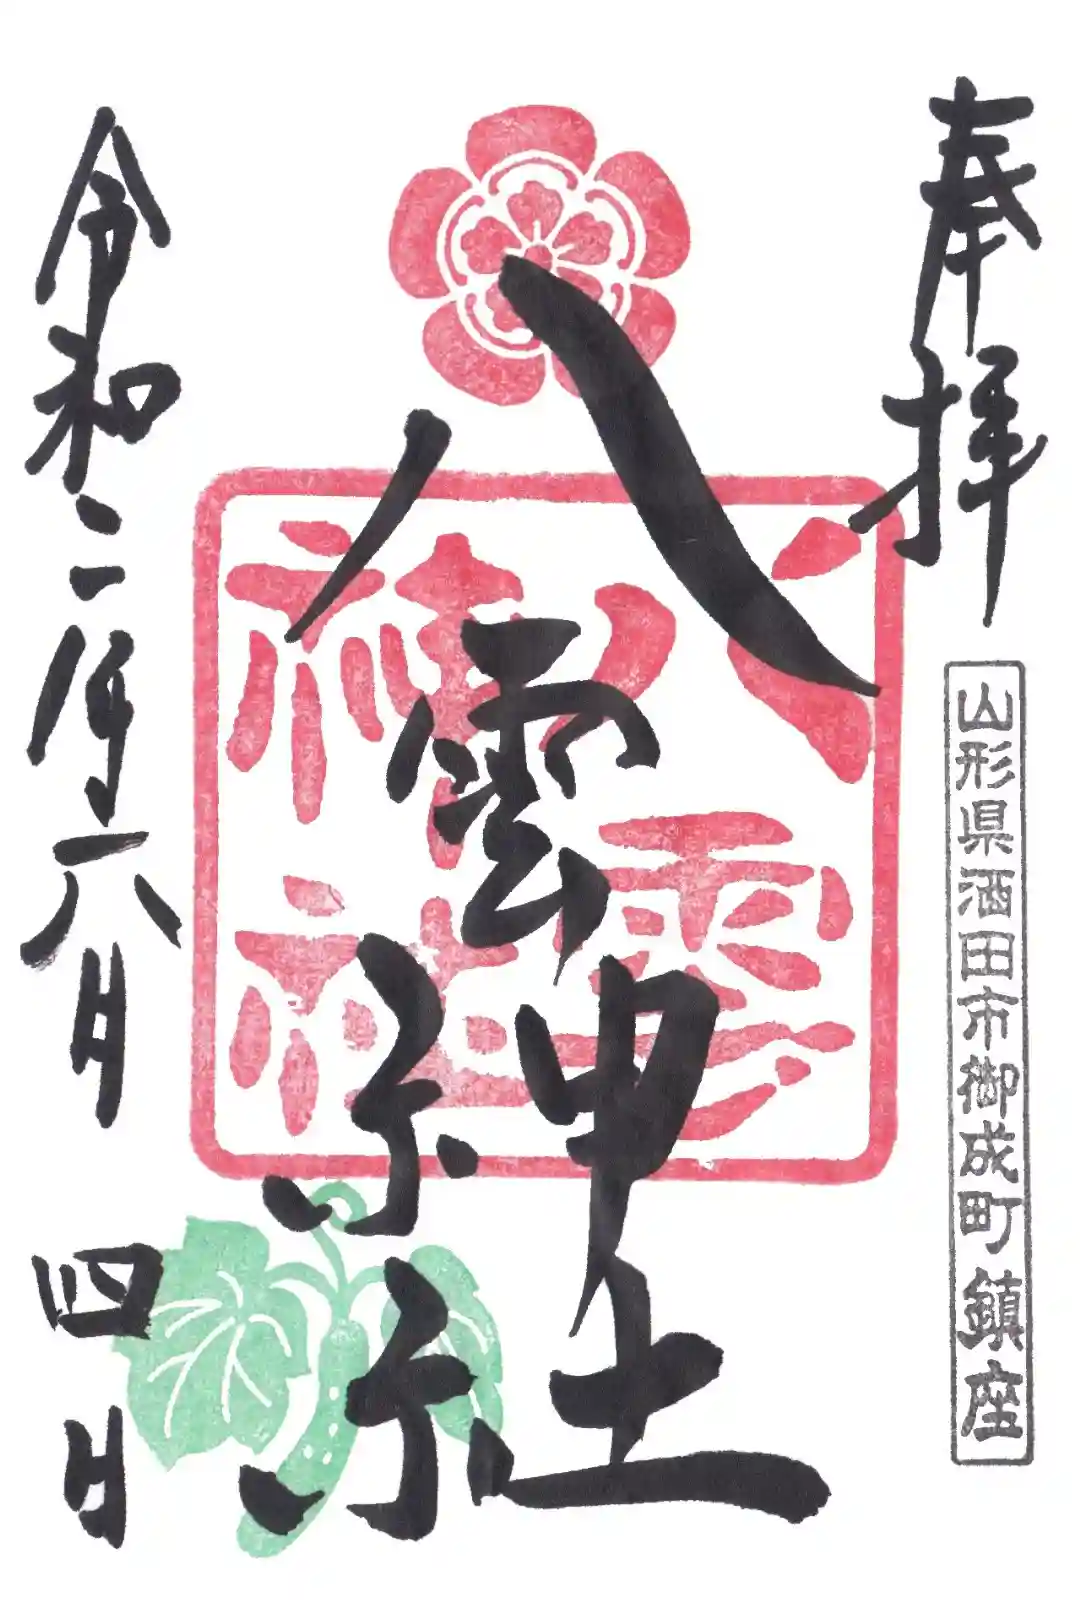 奉拝
山形県酒田市御成町鎮座
八雲神社
八雲
神社
令和二年六月四日